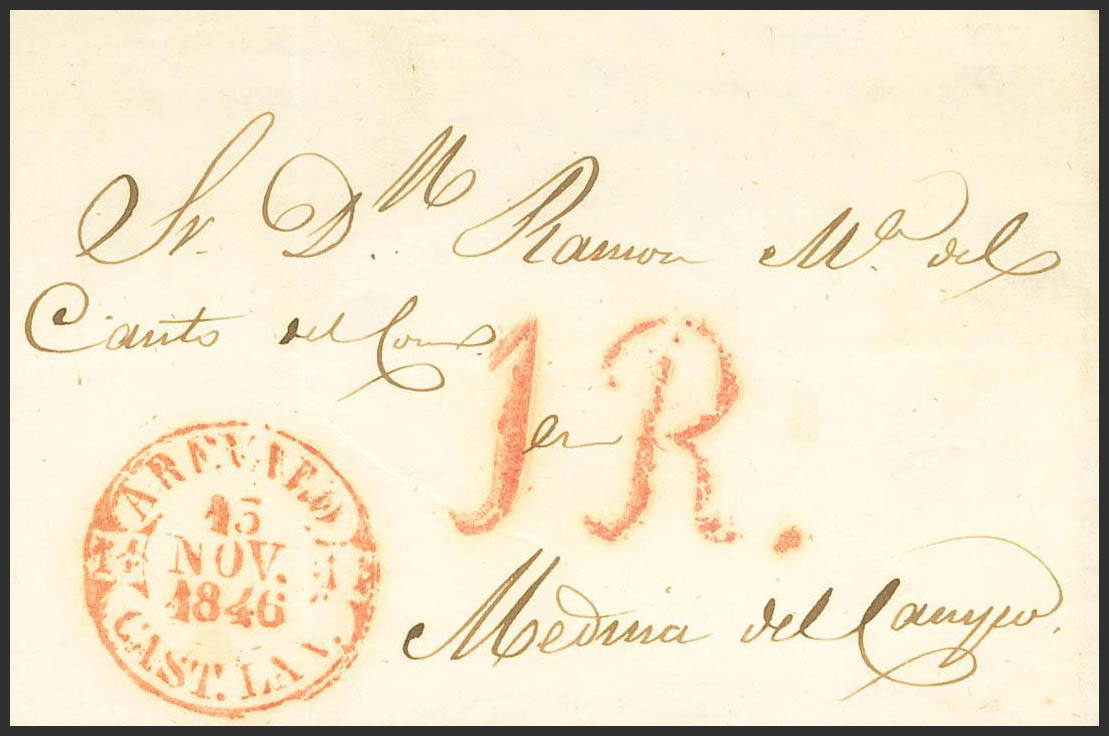 Sr. D.n Ramon Mª. del
Canto del Com.o
1R.
en
AREVALO
15
NOV.
1846
CAST. LA V.
Medina del Campo.